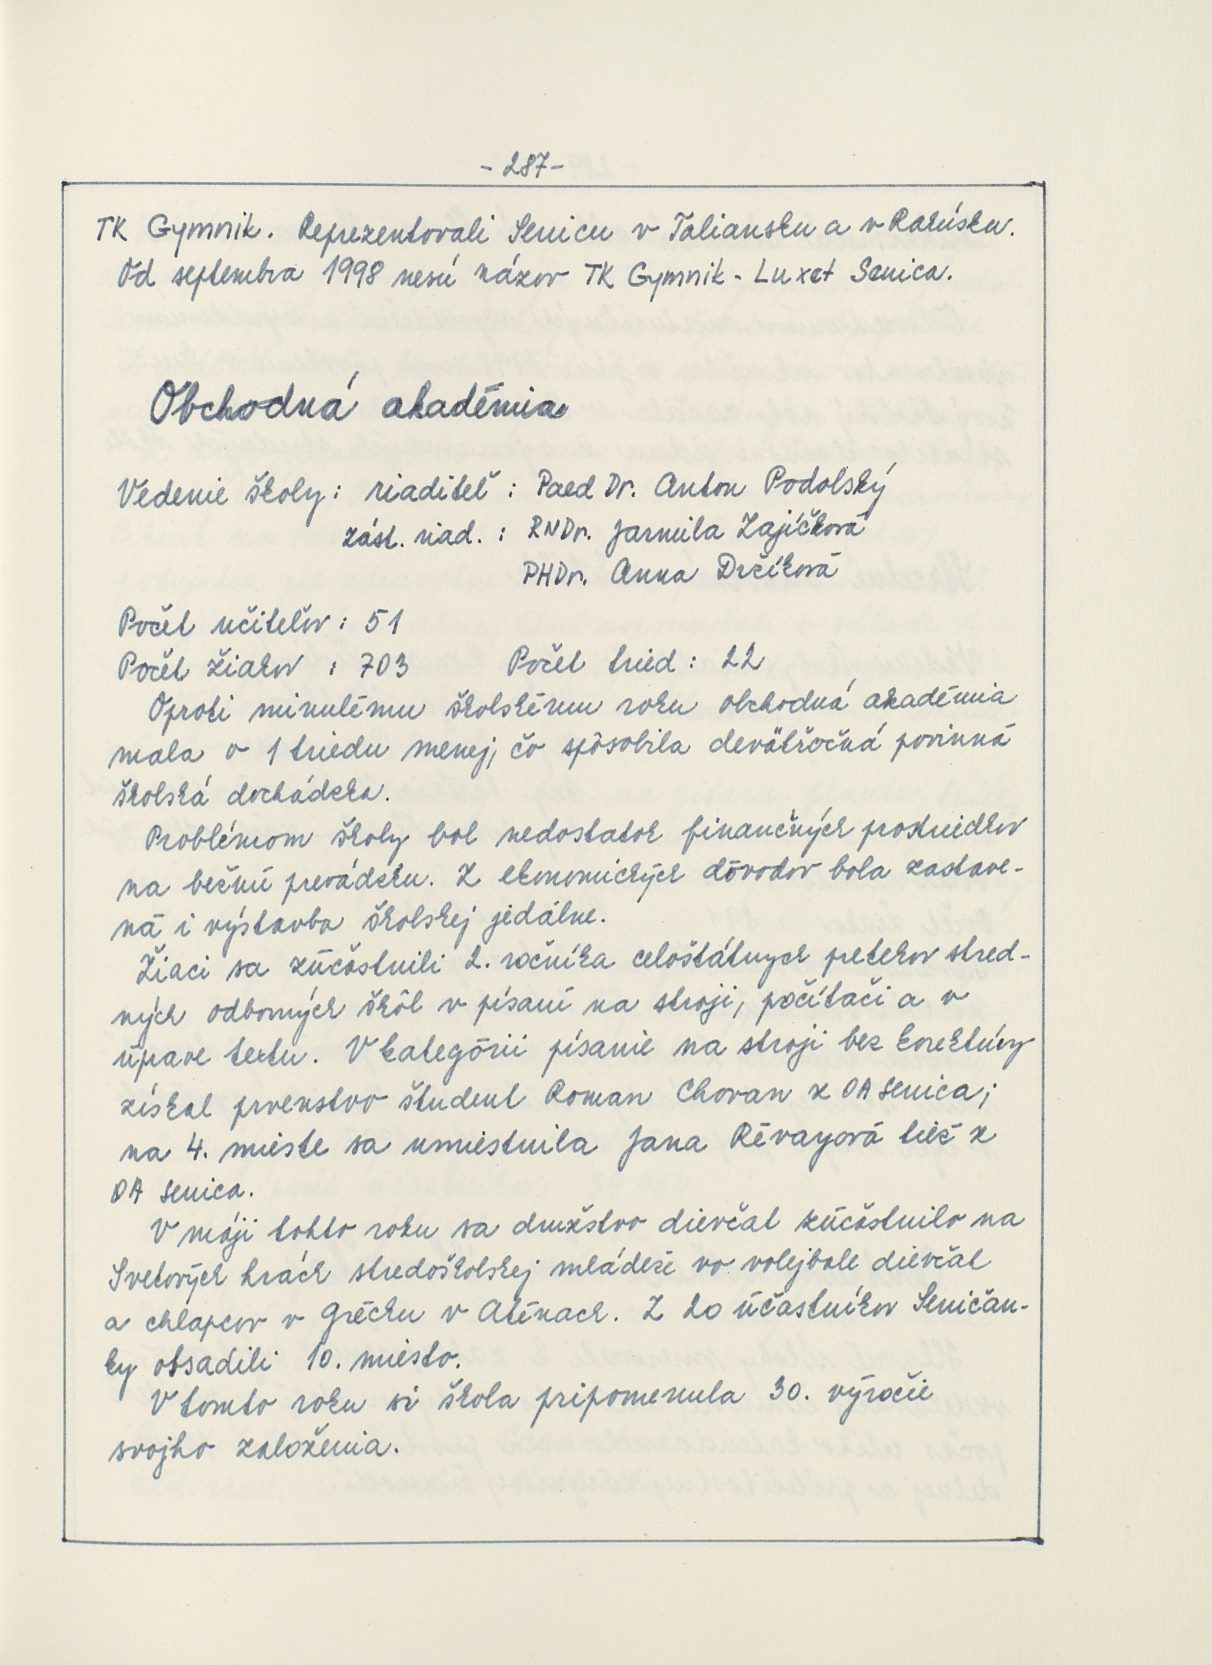 - 287 -
TK Gymnik. Reprezentovali Senicu v Taliansku a v Rakúsku.
Od septembra 1998 nesú názov TK Gymnik - Luxet Senica.
Obchodná akadémia
Vedenie školy: riaditeľ : Paed Dr. Anton Podolský
zást. riad. : RNDr. Jarmila Zajíčková
PHDr. Anna Drčíková
Počet učiteľov : 51
Počet žiakov : 703 Počet tried : 22
Oproti minulému školskému roku obchodná akadémia
mala o 1 triedu menej, čo spôsobila deväťročná povinná
školská dochádzka.
Problémom školy bol nedostatok finančných prostriedkov
na bežnú prevádzku. Z ekonomických dôvodov bola zastave-
ná i výstavba školskej jedálne.
Žiaci sa zúčastnili 2. ročníka celoštátnych pretekov stred-
ných odborných škôl v písaní na stroji, počítači a v
úprave textu. V kategórii písanie na stroji bez korektúry
získal prvenstvo študent Roman Chovan z OA Senica;
na 4. mieste sa umiestnila Jana Révayová tiež z
OA Senica.
V máji tohto roku sa družstvo dievčat zúčastnilo na
Svetových hrách stredoškolskej mládeže vo volejbale dievčat
a chlapcov v Grécku v Aténach. Z 20 účastníkov Seničan-
ky obsadili 10. miesto.
V tomto roku si škola pripomenula 30. výročie
svojho založenia.